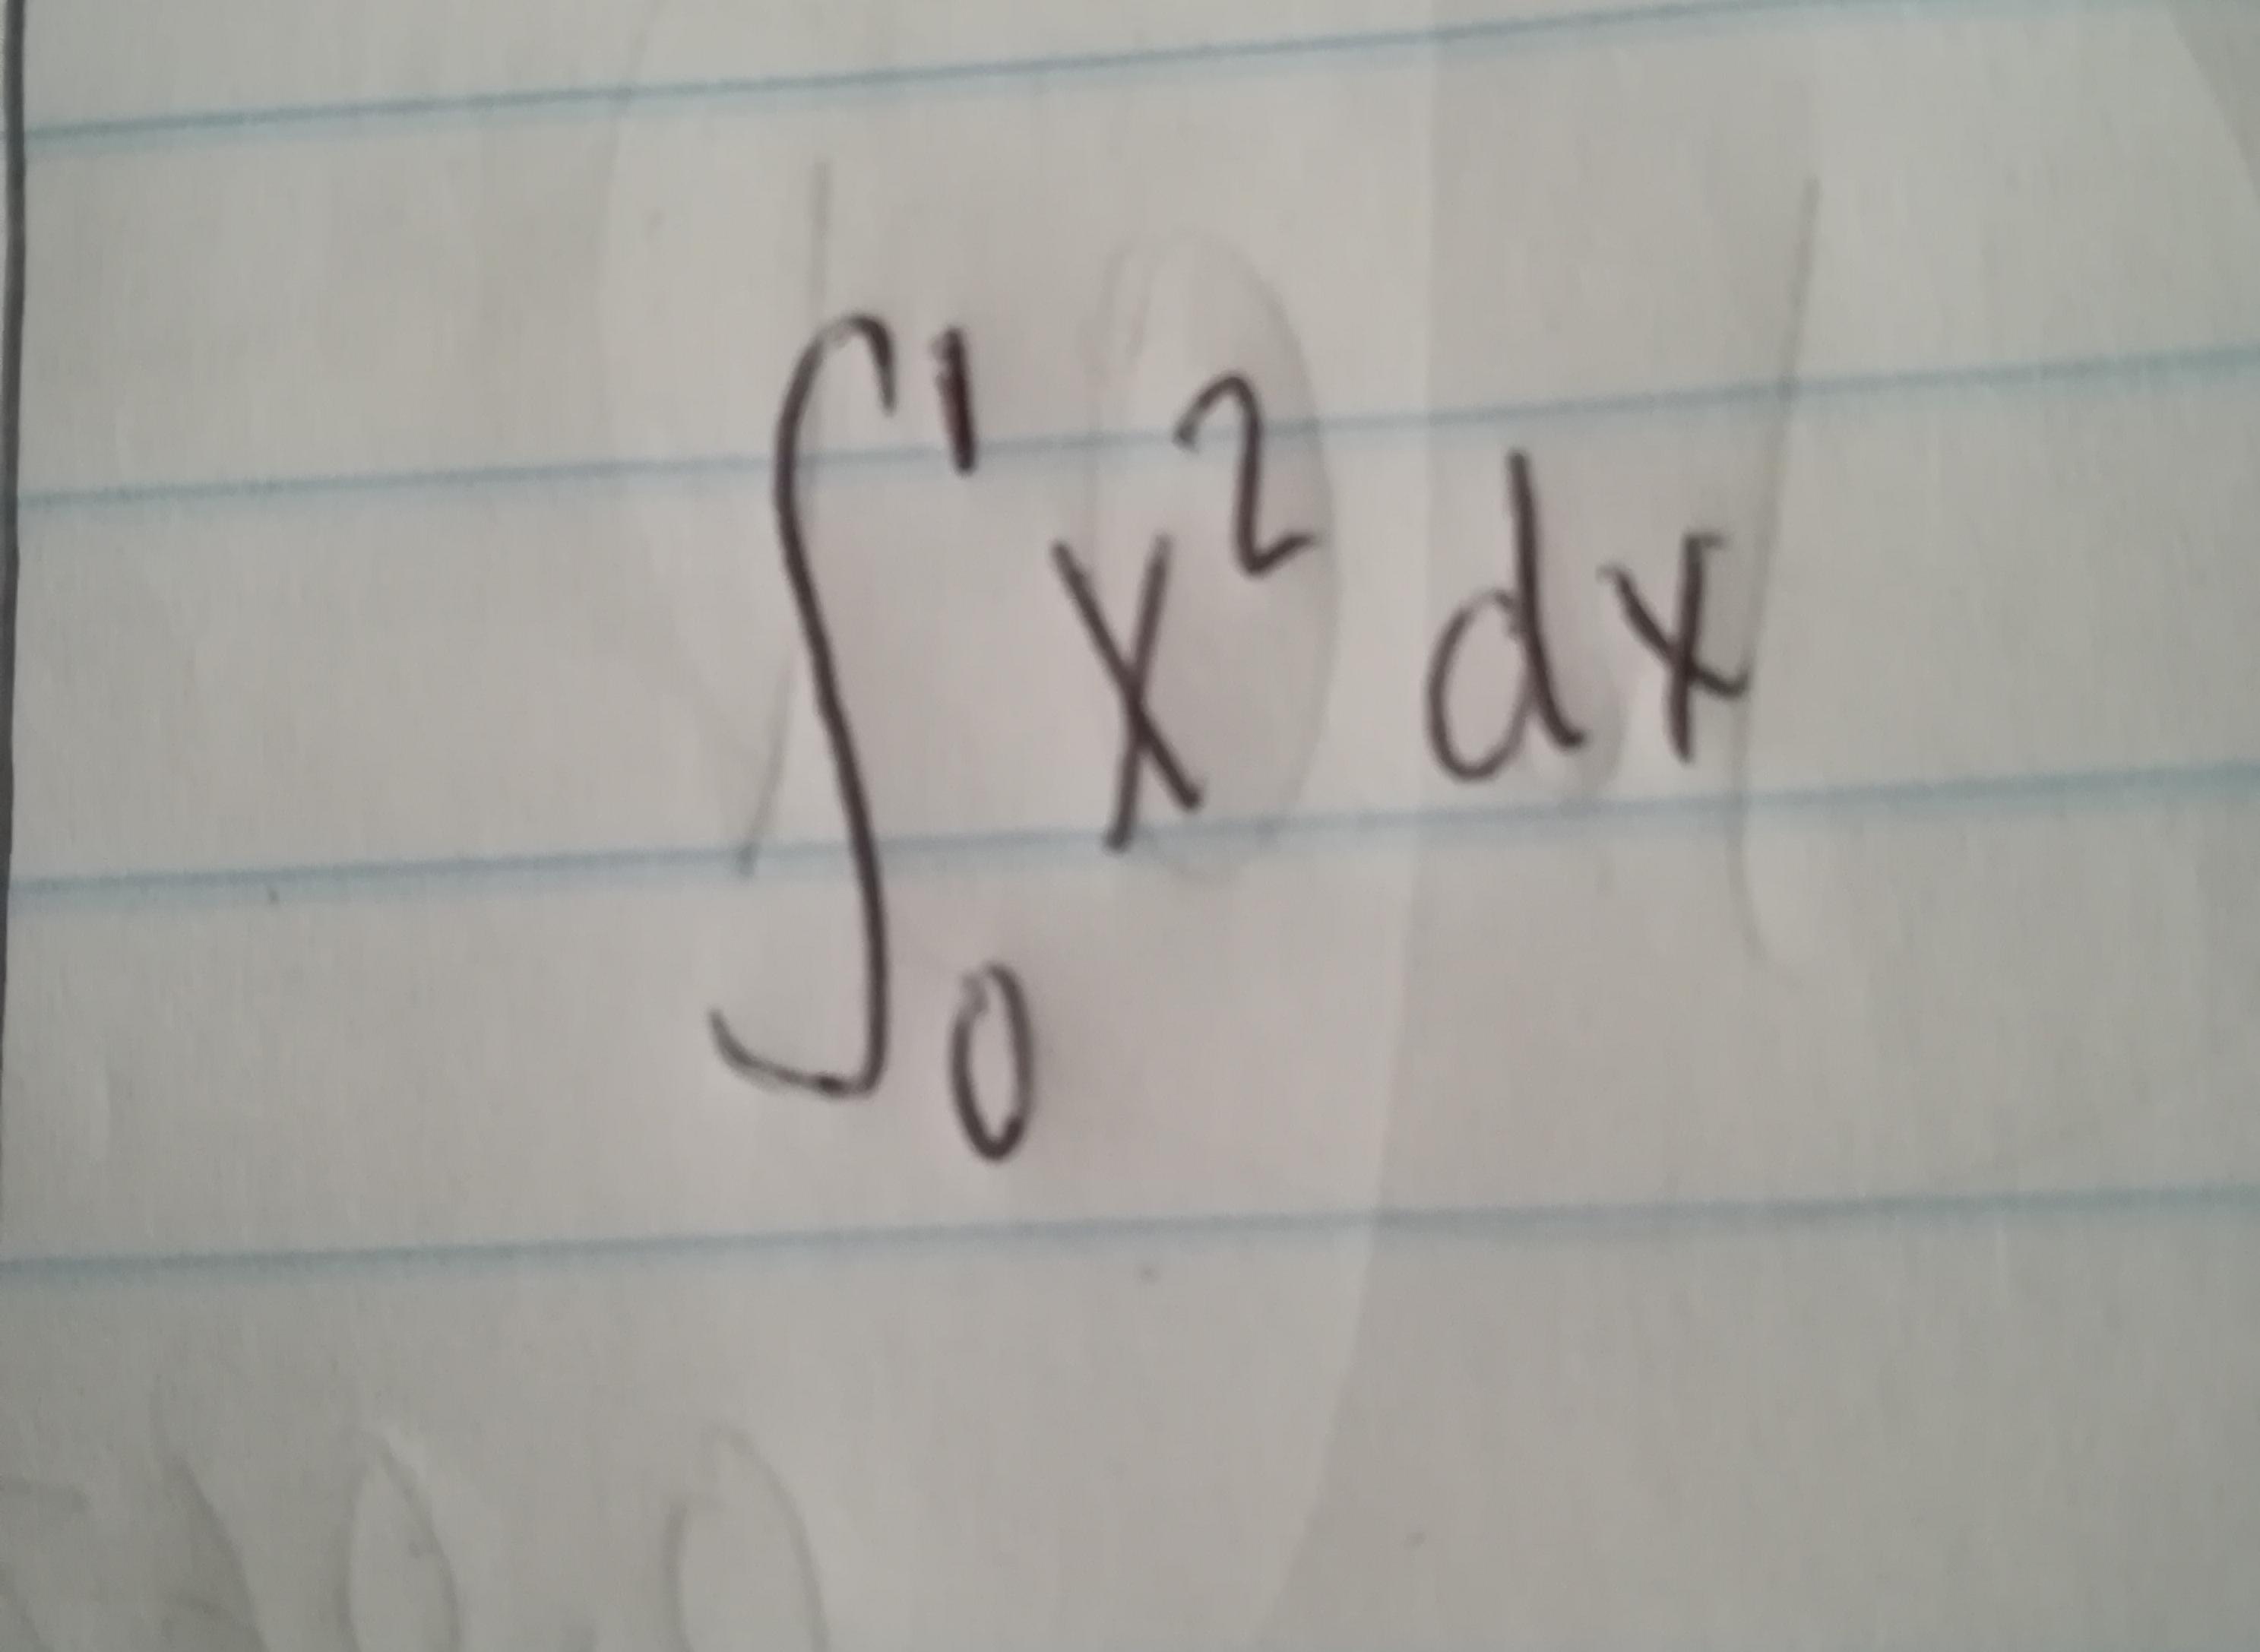 ∫₀¹ x² dx